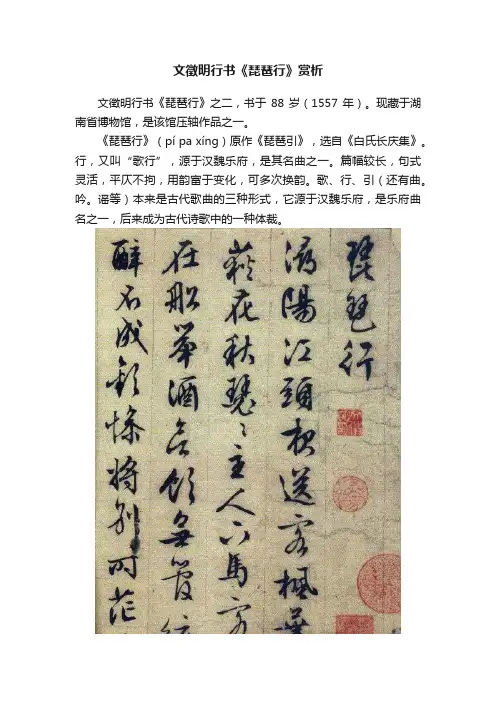 文徵明行书《琵琶行》赏析
文徵明行书《琵琶行》之二，书于 88 岁（1557 年）。现藏于湖
南省博物馆，是该馆压轴作品之一。
《琵琶行》（pí pa xíng）原作《琵琶引》，选自《白氏长庆集》。
行，又叫“歌行”，源于汉魏乐府，是其名曲之一。篇幅较长，句式
灵活，平仄不拘，用韵富于变化，可多次换韵。歌、行、引（还有曲。
吟。谣等）本来是古代歌曲的三种形式，它源于汉魏乐府，是乐府曲
名之一，后来成为古代诗歌中的一种体裁。
琵琶行
潯陽江頭夜送客楓葉
荻花秋瑟〻主人下馬客
在船舉酒欲飲無管
醉不成歡慘將別時茫